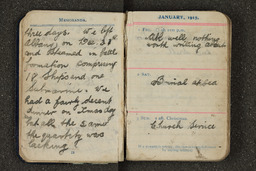 MEMORANDA.
three days. We left
Albany on Dec 30th
and steamed in battle
formation comprising
18 ships and one
submarine. We
had a fairly decent
dinner on Tuesday
but all the same
the quantity was
lacking
JANUARY, 1915.
All well nothing
worth writing about
Burial at sea
Church Service